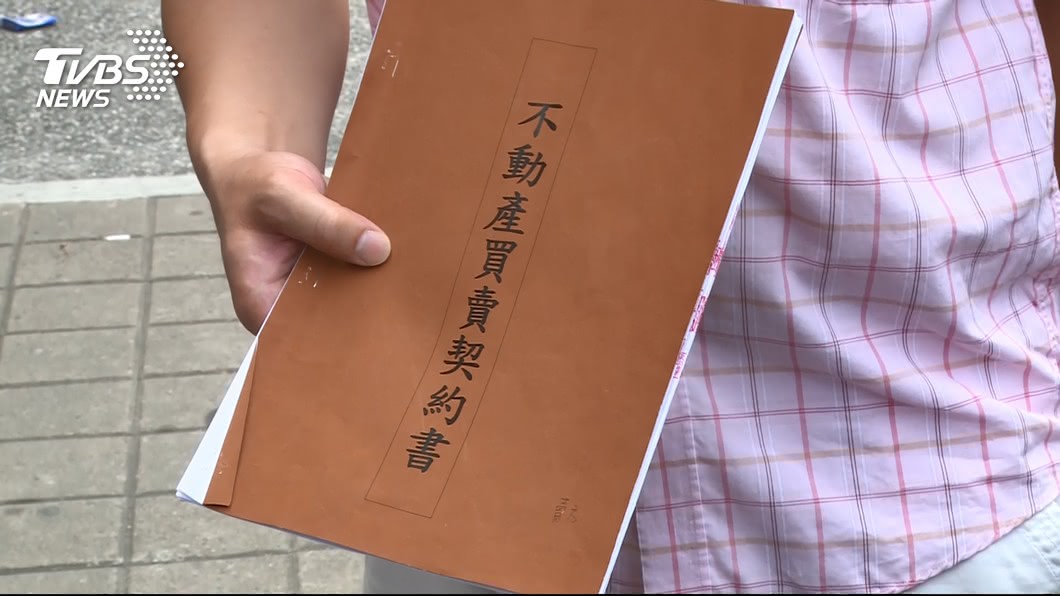 TVBS
NEWS
不動產買賣契約書